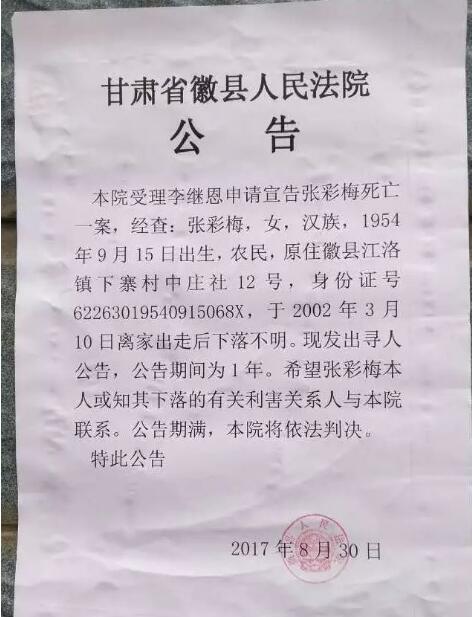 甘肃省徽县人民法院
公 告
本院受理李继恩申请宣告张彩梅死亡
一案，经查：张彩梅，女，汉族，1954
年9月15日出生，农民，原住徽县江洛
镇下寨村中庄社12号，身份证号
62263019540915068X，于2002年3月
10日离家出走后下落不明。现发出寻人
公告，公告期间为1年。希望张彩梅本
人或知其下落的有关利害关系人与本院
联系。公告期满，本院将依法判决。
特此公告
2017年8月30日